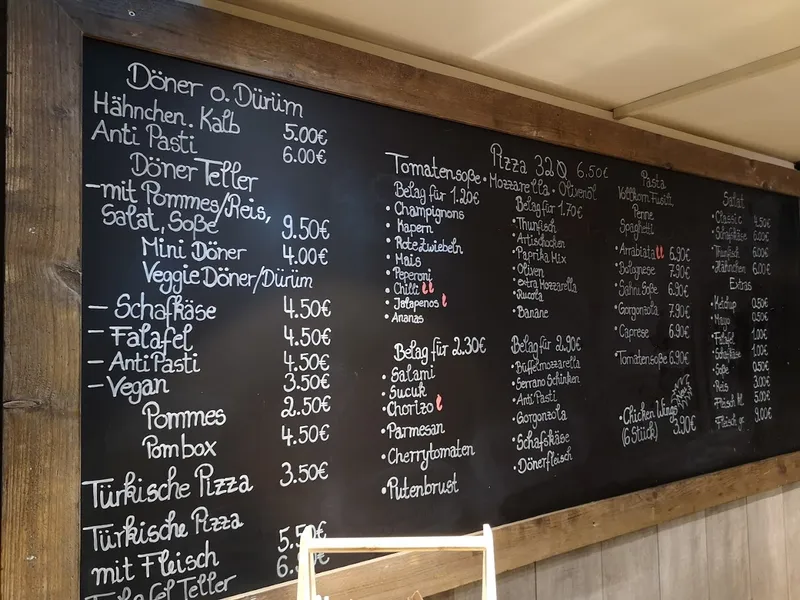 Döner o. Dürüm
Hähnchen. Kalb 5.00€
Anti Pasti 6.00€
Döner Teller
-mit Pommes/Reis,
Salat, Soße 9.50€
Mini Döner 4.00€
Veggie Döner/Dürüm
- Schafkäse 4.50€
- Falafel 4.50€
- AntiPasti 4.50€
- Vegan 3.50€
Pommes 2.50€
Pombox 4.50€
Türkische Pizza 3.50€
Türkische Pizza
mit Fleisch
Teller
Pizza 32Q 6.50€
Tomatensoße • Mozzarella • Olivenöl
Belag für 1.20€
• Champignons
• Kapern
• Rote Zwiebeln
• Mais
• Peperoni
• Chilli
• Jalapenos
• Ananas
Belag für 1.70€
• Thunfisch
• Artischocken
• Paprika Mix
• Oliven
• extra Mozzarella
• Rucola
• Banane
Belag für 2.30€
• Salami
• Sucuk
• Chorizo
• Parmesan
• Cherrytomaten
• Putenbrust
Belag für 2.90€
• Büffelmozzarella
• Serrano Schinken
• Anti Pasti
• Gorgonzola
• Schafskäse
• Dönerfleisch
Pasta
Vollkorn Fusilli
Penne
Spaghetti
• Arrabiata 6.90€
• Bolognese 7.90€
• Sahni Soße 6.90€
• Gorgonzola 7.90€
• Caprese 6.90€
• Tomatensoße 6.90€
• Chicken Wings
(6 Stück) 3.90€
Salat
• Classic 4.50€
• Schafskäse 6.00€
• Thunfisch 6.00€
• Hähnchen 6.00€
Extras
• Ketchup 0.50€
• Mayo 0.50€
• Falafel 1.00€
• Schafskäse 1.00€
• Soße 0.50€
• Reis 3.00€
• Fleisch kl. 5.00€
• Fleisch gr. 9.00€